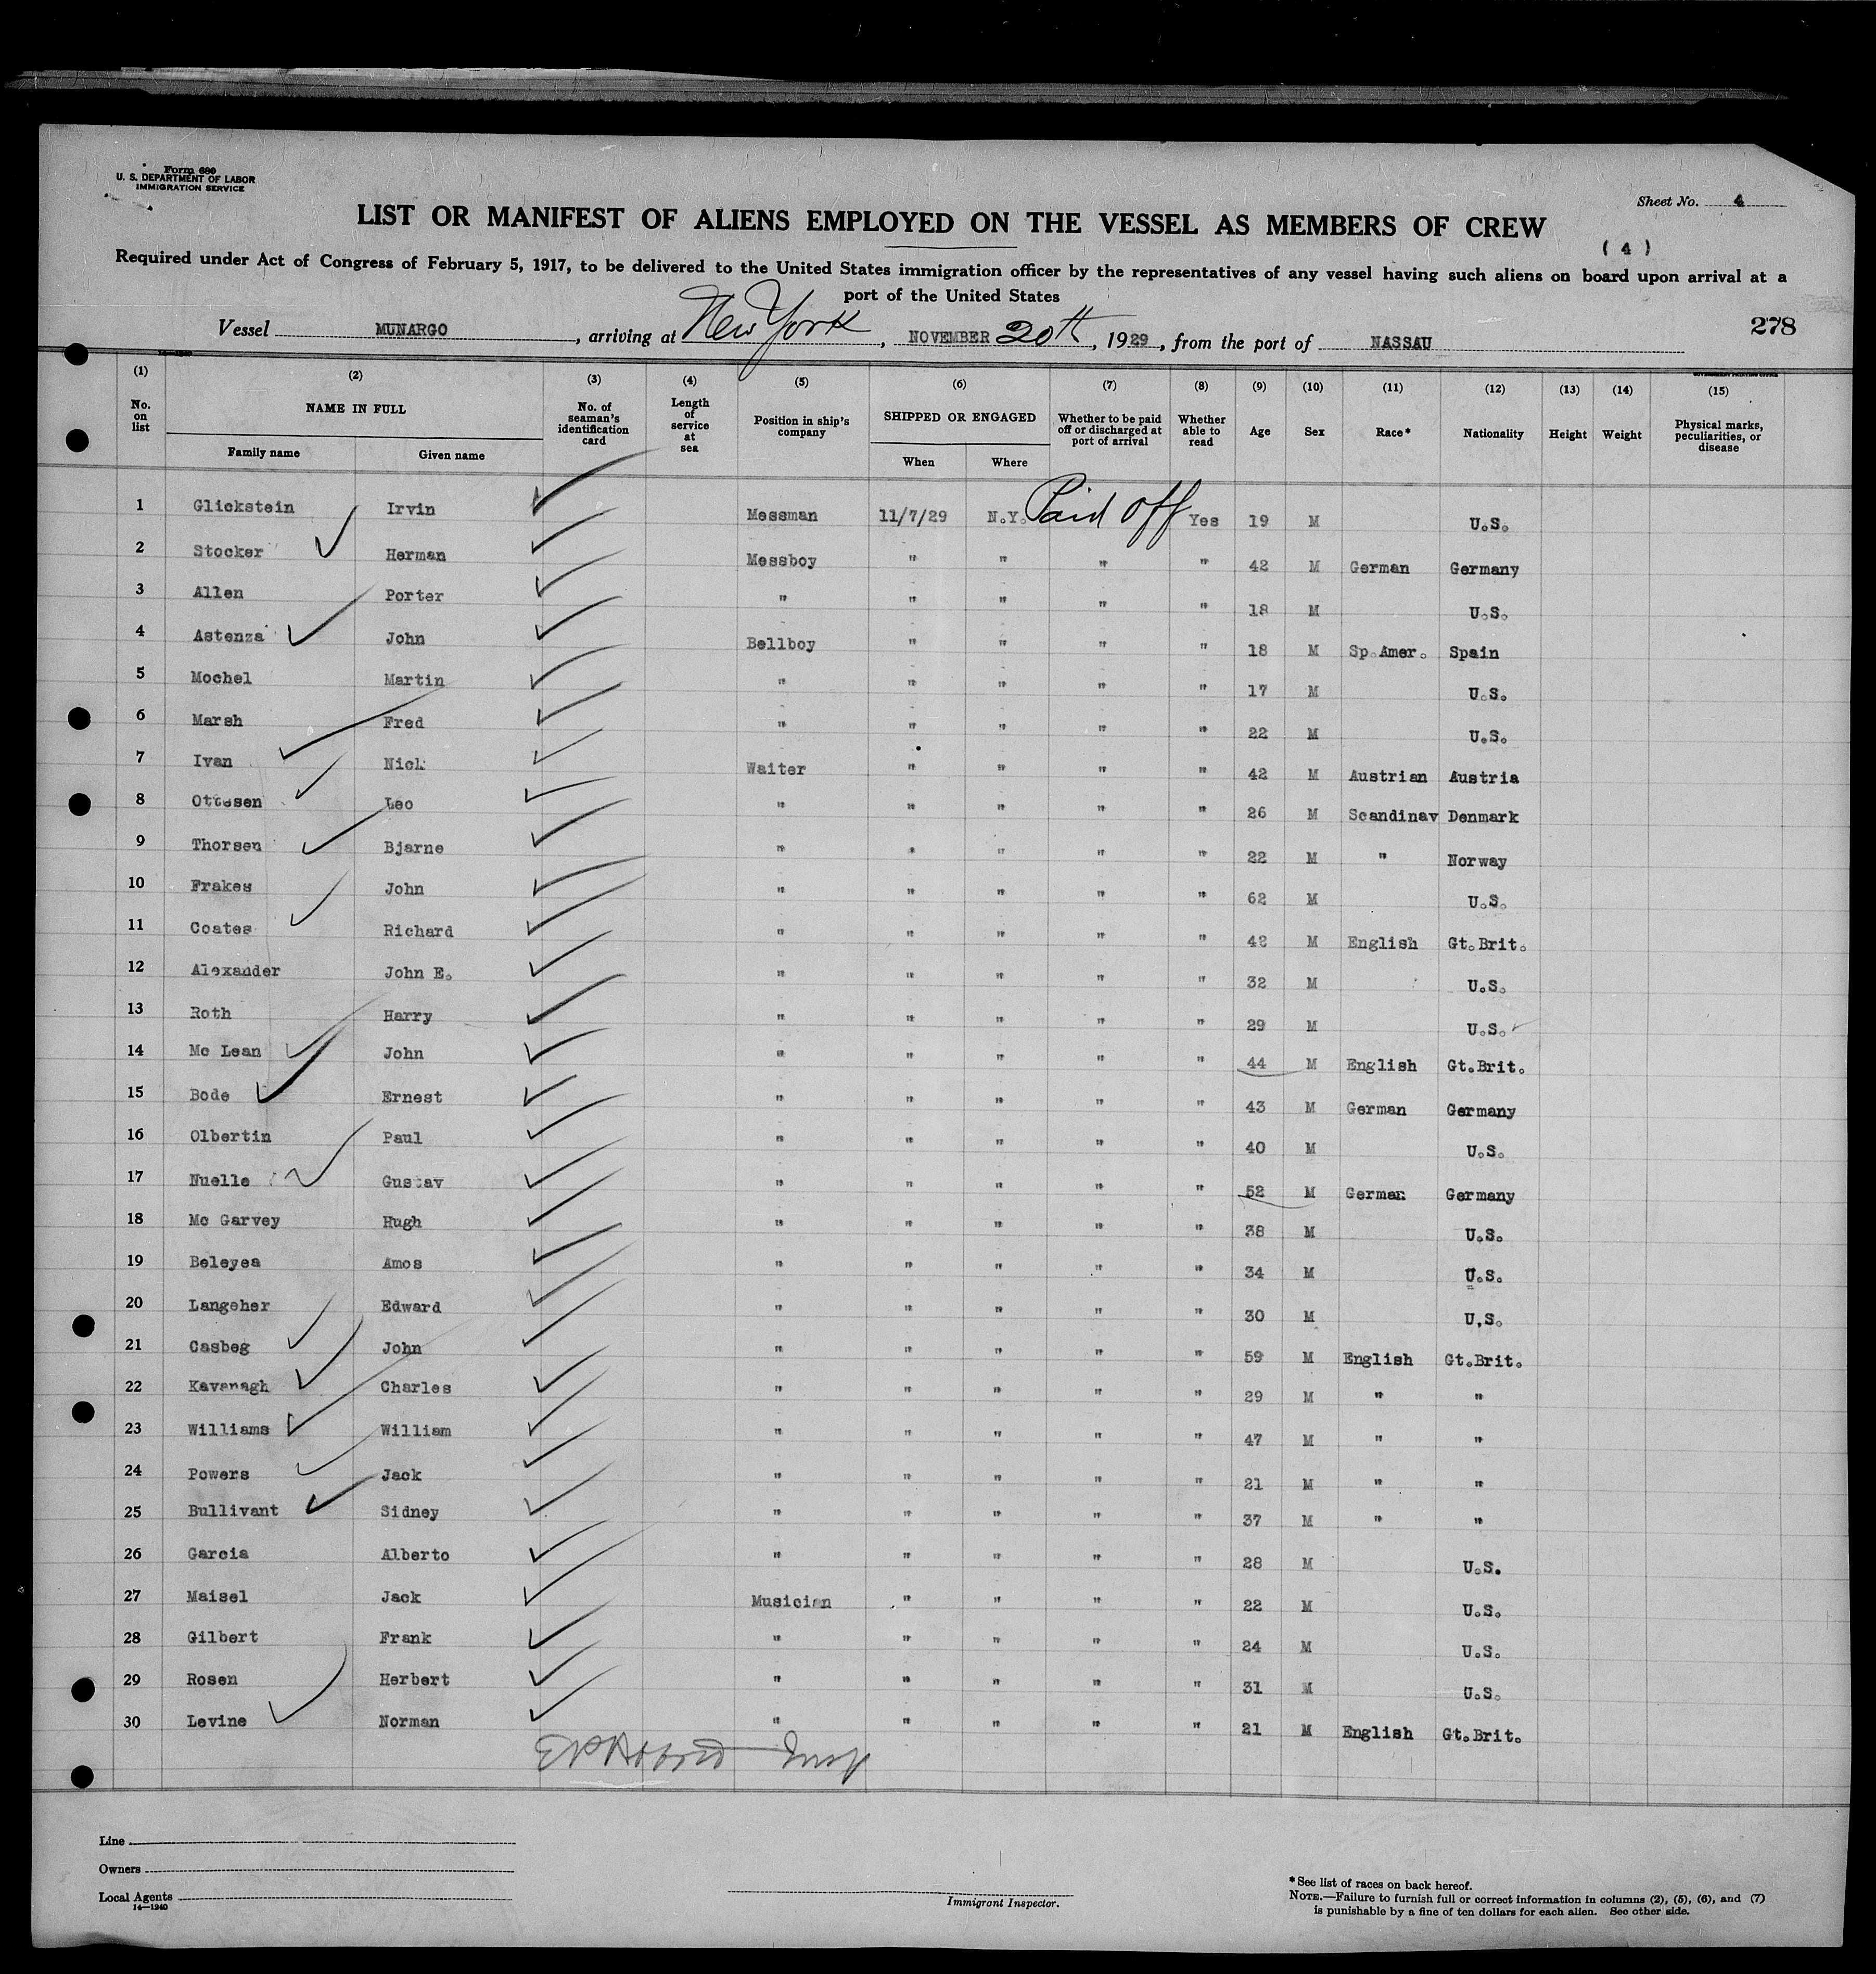 Form 680
U. S. DEPARTMENT OF LABOR
IMMIGRATION SERVICE
Sheet No. 4
LIST OR MANIFEST OF ALIENS EMPLOYED ON THE VESSEL AS MEMBERS OF CREW
( 4 )
Required under Act of Congress of February 5, 1917, to be delivered to the United States immigration officer by the representatives of any vessel having such aliens on board upon arrival at a
port of the United States
Vessel MUNARGO, arriving at New York, NOVEMBER 20th, 1929, from the port of NASSAU
278
(1) (2) (3) (4) (5) (6) (7) (8) (9) (10) (11) (12) (13) (14) (15)
No. on list NAME IN FULL Family name Given name No. of seaman's identification card Length of service at sea Position in ship's company SHIPPED OR ENGAGED When Where Whether to be paid off or discharged at port of arrival Whether able to read Age Sex Race* Nationality Height Weight Physical marks, peculiarities, or disease
1 Glickstein Irvin Messman 11/7/29 N.Y. Paid off Yes 19 M U.S.
2 Stocker Herman Messboy " " " " 42 M German Germany
3 Allen Porter " " " " " 18 M U.S.
4 Astenza John Bellboy " " " " 18 M Sp.Amer. Spain
5 Mochel Martin " " " " " 17 M U.S.
6 Marsh Fred " " " " " 22 M U.S.
7 Ivan Nick Waiter " " " " 42 M Austrian Austria
8 Ottesen Leo " " " " " 26 M Scandinav Denmark
9 Thorsen Bjarne " " " " " 22 M " Norway
10 Frakes John " " " " " 62 M U.S.
11 Coates Richard " " " " " 42 M English Gt.Brit.
12 Alexander John E. " " " " " 32 M U.S.
13 Roth Harry " " " " " 29 M U.S.
14 Mc Lean John " " " " " 44 M English Gt.Brit.
15 Bode Ernest " " " " " 43 M German Germany
16 Olbertin Paul " " " " " 40 M U.S.
17 Nuelle Gustav " " " " " 52 M German Germany
18 Mc Garvey Hugh " " " " " 38 M U.S.
19 Beleyea Amos " " " " " 34 M U.S.
20 Langeher Edward " " " " " 30 M U.S.
21 Casbeg John " " " " " 59 M English Gt.Brit.
22 Kavanagh Charles " " " " " 29 M " "
23 Williams William " " " " " 47 M " "
24 Powers Jack " " " " " 21 M " "
25 Bullivant Sidney " " " " " 37 M " "
26 Garcia Alberto " " " " " 28 M U.S.
27 Maisel Jack Musician " " " " 22 M U.S.
28 Gilbert Frank " " " " " 24 M U.S.
29 Rosen Herbert " " " " " 31 M U.S.
30 Levine Norman " " " " " 21 M English Gt.Brit.
Line
Owners
Local Agents
14—1240
Immigrant Inspector.
*See list of races on back hereof.
NOTE.—Failure to furnish full or correct information in columns (2), (5), (6), and (7)
is punishable by a fine of ten dollars for each alien. See other side.